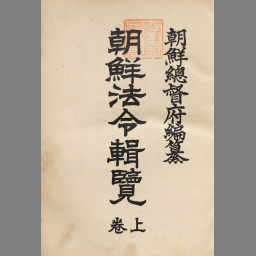 朝鮮總督府編纂
朝鮮法令輯覽
上卷